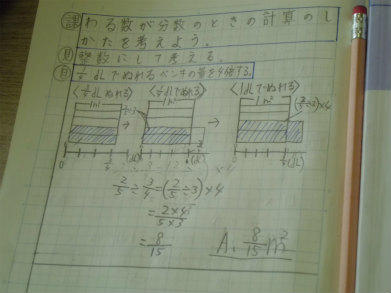 課 わる数が分数のときの計算のし
かたを考えよう。
見 整数にして考える。
自 1/4 dLでぬれるペンキの量を4倍する。
dLでぬれる〉 dLでぬれる〉 〈1dLでぬれる〉
1m² 1m² 1m²
(2/5÷3)×4
0 (dL) 0 (dL) 0 (dL)
2/5÷3/4=(2/5÷3)×4
=2×4/5×3
=8/15 A. 8/15 m²